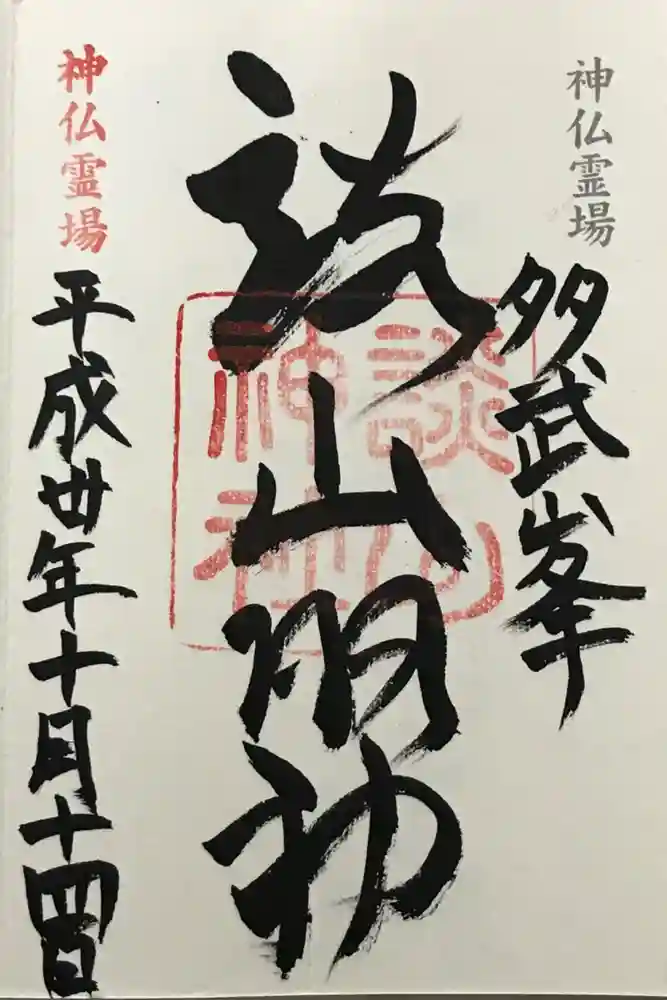 神仏霊場
多武峯
談山明神
談山神社
神仏霊場
平成丗年十月十四日